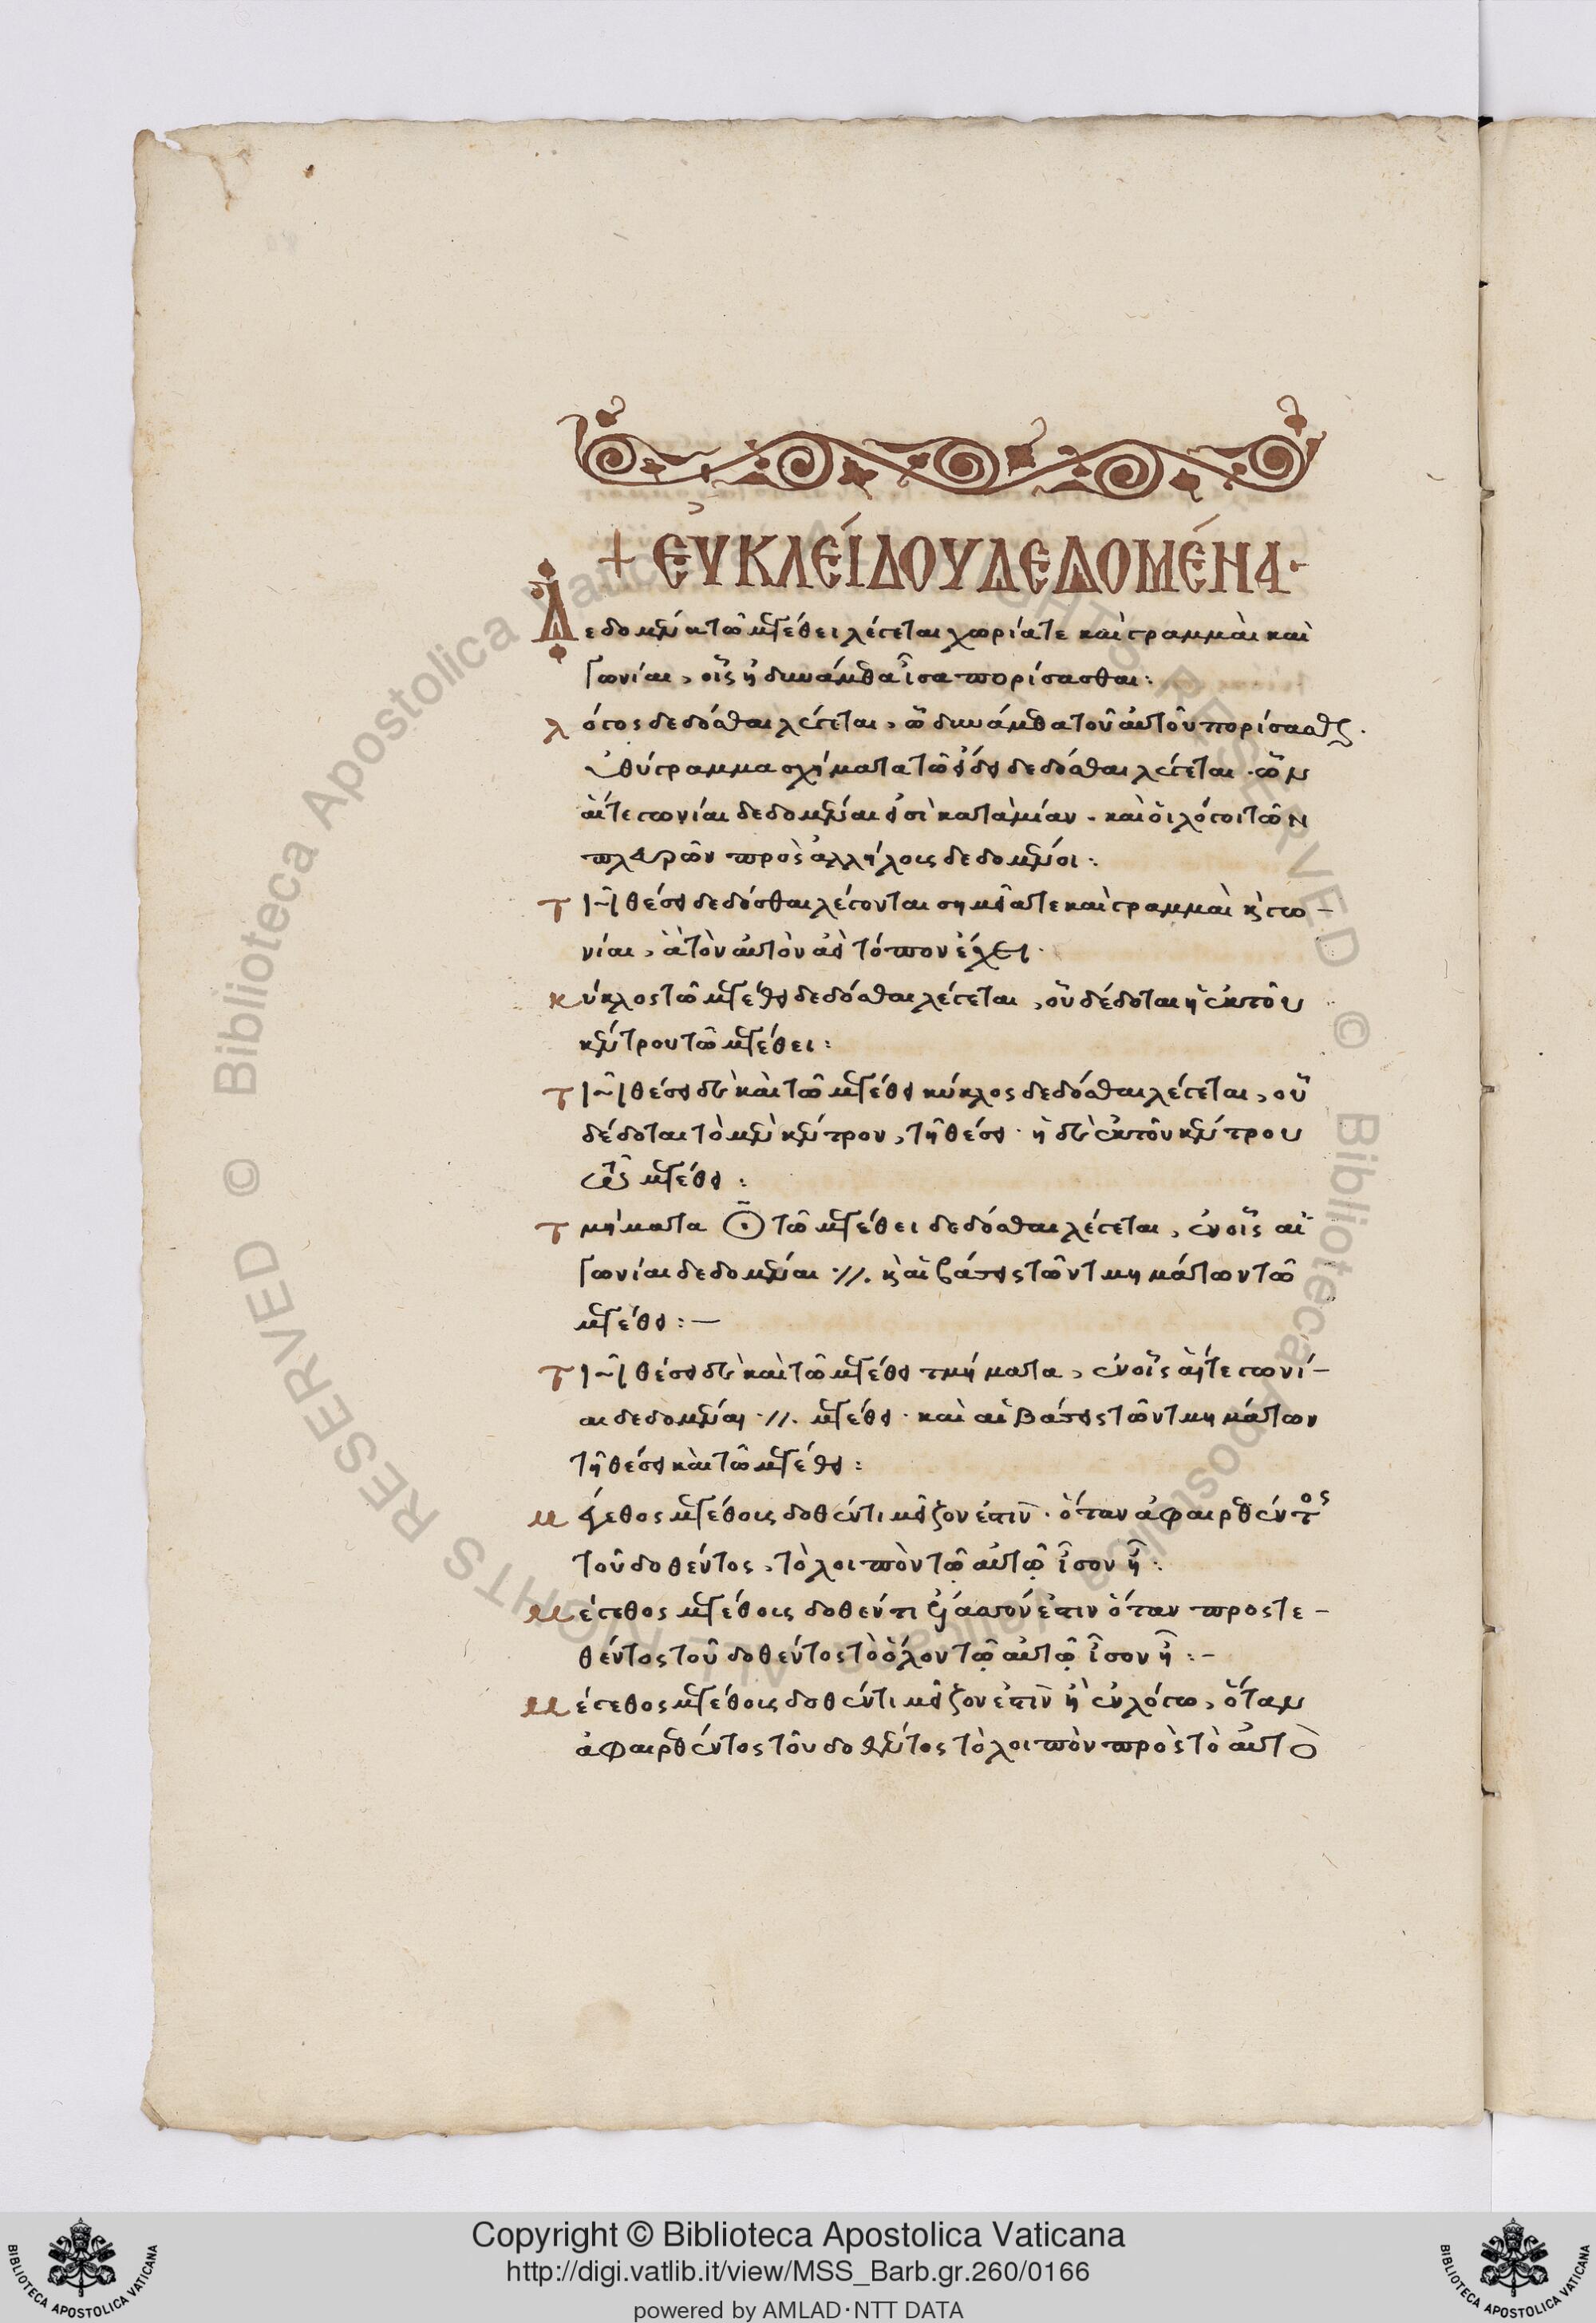 + ΕΥ̓ΚΛΕΊΔΟΥ ΔΕΔΟΜΈΝΑ·
Δεδομένα τῶ μεγέθει λέγεται χωρία τε καὶ γραμμαὶ καὶ
γωνίαι, οἷς ἢ δυνάμεθα ἴσα πορίσασθαι:
λόγος δεδόσθαι λέγεται, ὧ δυνάμεθα τοῦ αὐτοῦ πορίσασθαι.
εὐθύγραμμα σχήματα τῶ εἴδει δεδόσθαι λέγεται. ὧν
αἵ τε γωνίαι δεδομέναι εἰσὶ κατὰ μίαν. καὶ οἱ λόγοι τῶν
πλευρῶν πρὸς ἀλλήλους δεδομένοι:
τῆ θέσει δεδόσθαι λέγονται σημεῖά τε καὶ γραμμαὶ κ̀ γω-
νίαι, ἃ τὸν αὐτὸν ἀεὶ τόπον ἔχει.
κύκλος τῶ μεγέθει δεδόσθαι λέγεται, οὗ δέδοται ἡ ἐκ τοῦ
κέντρου τῶ μεγέθει:
τῆ θέσει δὲ καὶ τῶ μεγέθει κύκλος δεδόσθαι λέγεται, οὗ
δέδοται τὸ μὲν κέντρον, τῆ θέσει. ἡ δὲ ἐκ τοῦ κέντρου
τῶ μεγέθει:
τμήματα ⊙ τῶ μεγέθει δεδόσθαι λέγεται, ἐν οἷς αἱ
γωνίαι δεδομέναι ·//. κ̀ αἱ βάσεις τῶν τμημάτων τῶ
μεγέθει:—
τῆ θέσει δὲ καὶ τῶ μεγέθει τμήματα, ἐν οἷς αἵ τε γωνί-
αι δεδομέναι ·//. μεγέθει. καὶ αἱ βάσεις τῶν τμημάτων
τῆ θέσει καὶ τῶ μεγέθει:
μέγεθος μεγέθους δοθέντι μεῖζον ἐστὶν. ὅταν ἀφαιρεθέντος
τοῦ δοθέντος, τὸ λοιπὸν τῶ αὐτῶ ἴσον ἦ:
μέγεθος μεγέθους δοθέντι ἔλασσόν ἐστιν ὅταν προστε-
θέντος τοῦ δοθέντος τὸ ὅλον τῶ αὐτῶ ἴσον ἦ:-
μέγεθος μεγέθους δοθέντι μεῖζον ἐστὶν ἢ ἐν λόγω, ὅταν
ἀφαιρεθέντος τοῦ δοθέντος τὸ λοιπὸν πρὸς τὸ αὐτὸ
Copyright © Biblioteca Apostolica Vaticana
http://digi.vatlib.it/view/MSS_Barb.gr.260/0166
powered by AMLAD·NTT DATA
BIBLIOTECA APOSTOLICA VATICANA
BIBLIOTECA APOSTOLICA VATICANA